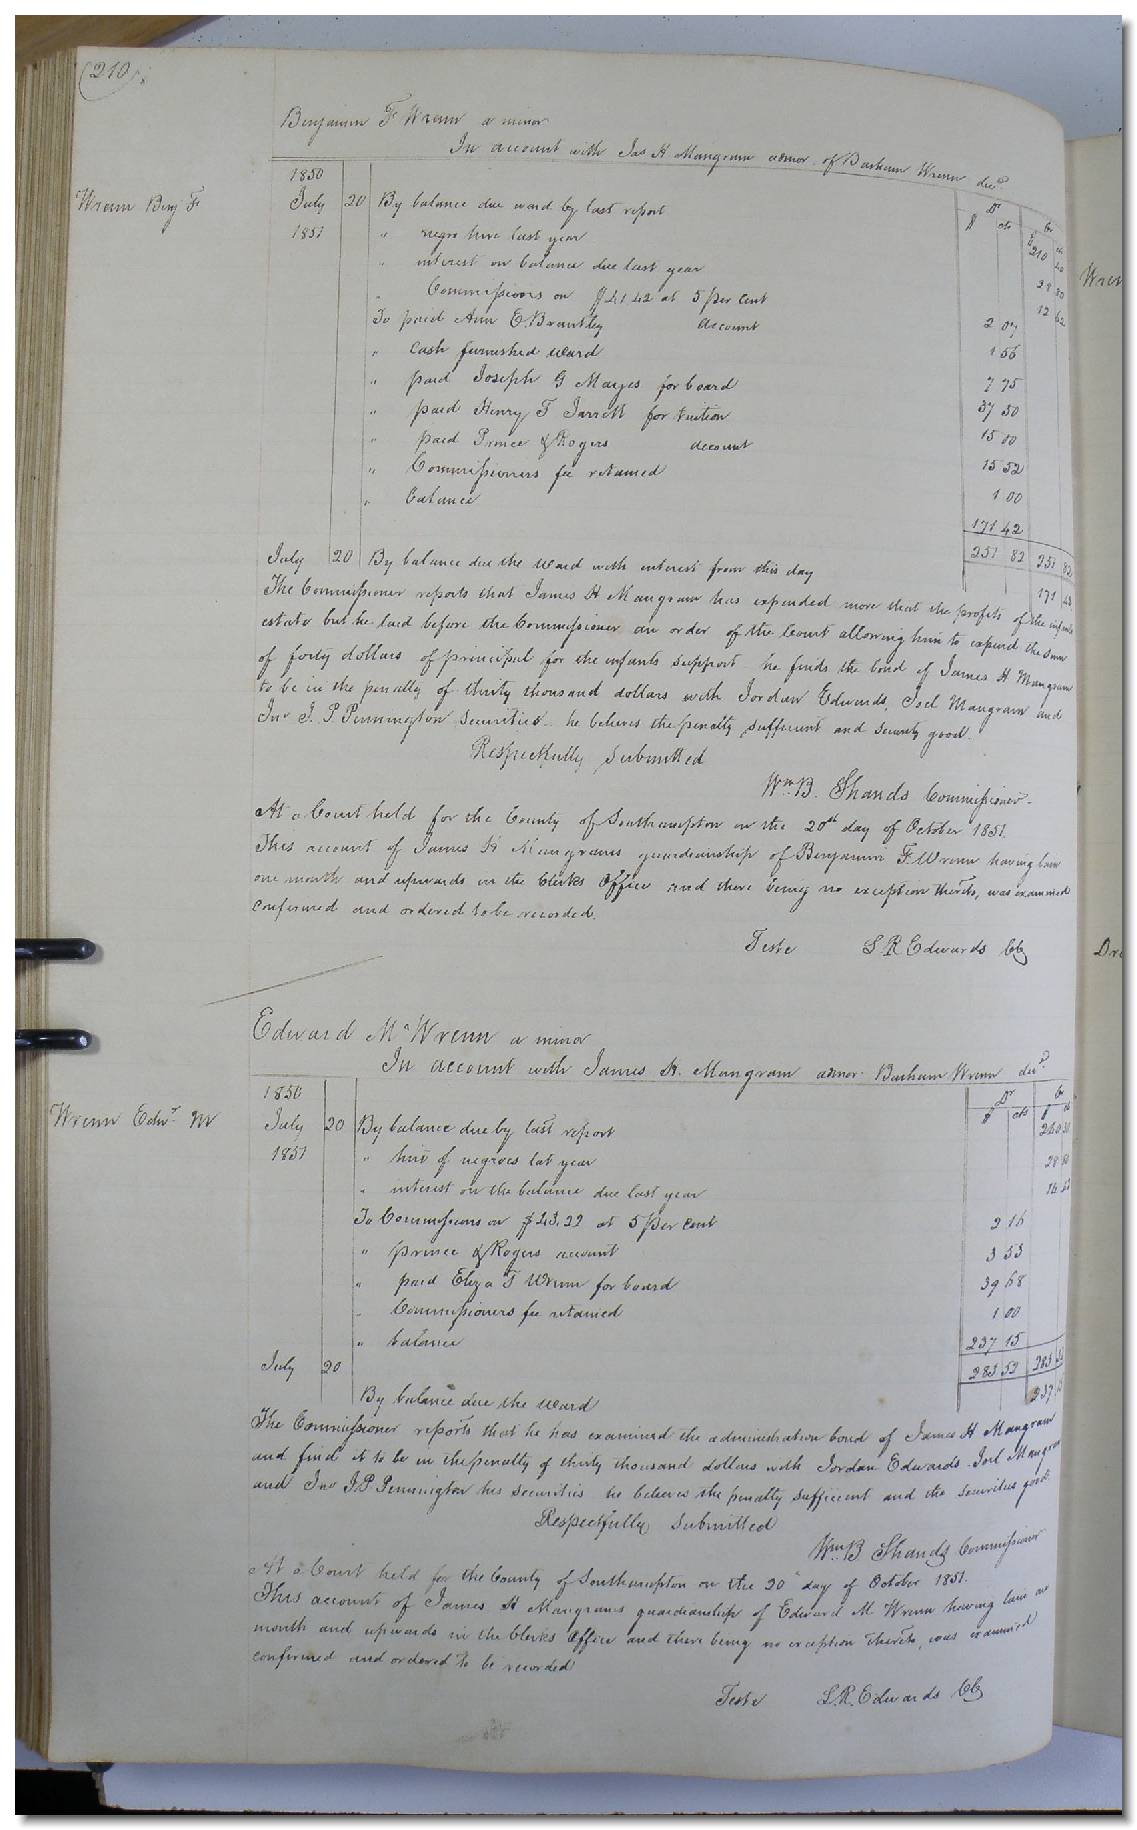 (210)
Benjamin F Wrenn a minor
In account with Jas H. Mangram admor. of Barham Wrenn decd.
Wrenn Benj F
1850
Dr Cr
$ cts $ cts
July 20 By balance due ward by last report 210 40
1851 " negro hire last year 28 80
" interest on balance due last year 12 62
" Commissions on $41.42 at 5 per cent 2 07
To paid Ann E. Brantley account 1 56
" Cash furnished ward 7 75
" paid Joseph G Mayes for board 37 50
" paid Henry T Jarrett for tuition 15 00
" paid Prince & Rogers account 15 52
" Commissioners fee retained 1 00
" Balance 171 42
251 82 251 82
July 20 By balance due the ward with interest from this day 171 42
The Commissioner reports that James H Mangram has expended more that the profits of the infants
estate but he laid before the Commissioner an order of the Court allowing him to expend the sum
of forty dollars of principal for the infants support he finds the bond of James H Mangram
to be in the penalty of thirty thousand dollars with Jordan Edwards, Joel Mangram and
Jno J. P. Pennington Securities he believes the penalty sufficient and security good.
Respectfully Submitted
Wm. B. Shands Commissioner
At a Court held for the County of Southampton on the 20th day of October 1851.
This account of James H Mangrams guardianship of Benjamin F. Wrenn having lain
one month and upwards in the Clerks Office and there being no exception thereto, was examined
confirmed and ordered to be recorded.
Teste L R Edwards CC
Edward M Wrenn a minor
In account with James H. Mangram admor. Barham Wrenn decd.
Wrenn Edwd. M
1850
Dr Cr
$ cts $ cts
July 20 By balance due by last report
1851 " hire of negroes lat year
" interest on the balance due last year
To Commissions on $43.22 at 5 per cent 2 16
" Prince & Rogers account 3 53
" paid Eliza T Wrenn for board 39 68
" Commissioners fee retained 1 00
" balance 237 15
July 20 283 52 283 52
By balance due the ward 237 15
The Commissioner reports that he has examined the administration bond of James H Mangram
and find it to be in the penalty of thirty thousand dollars with Jordan Edwards Joel Mangram
and Jno J. P Pennington his securities he believes the penalty sufficient and the securities good
Respectfully Submitted
Wm. B Shands Commissioner
At a Court held for the County of Southampton on the 20" day of October 1851.
This account of James H Mangrams guardianship of Edward M Wrenn having lain one
month and upwards in the Clerks Office and there being no exception thereto, was examined
confirmed and ordered to be recorded
Teste L. R. Edwards CC